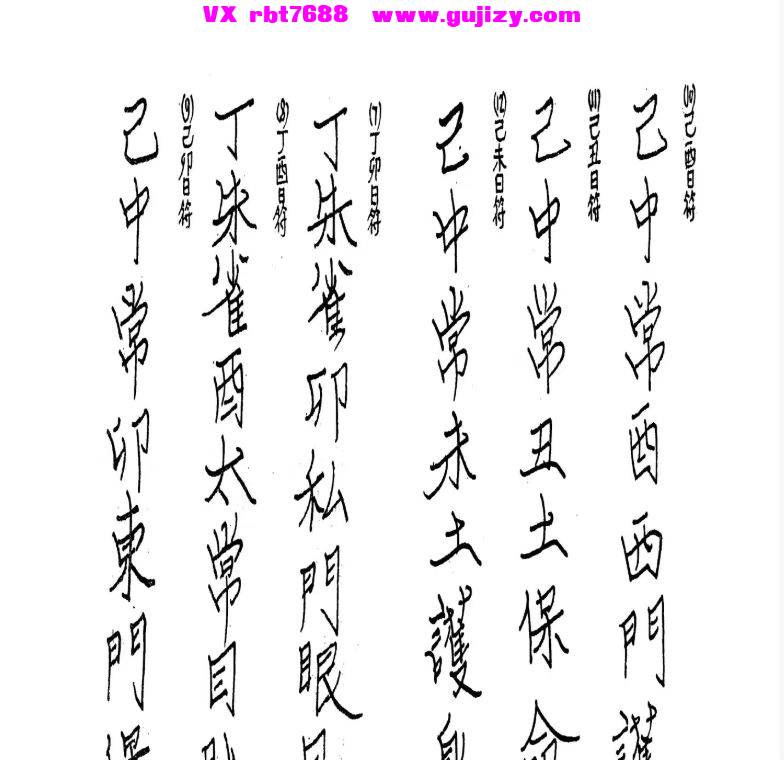 VX rbt7688 www.gujizy.com
(10)己酉日符
己中常酉西門護
(11)己丑日符
己中常丑土保命
(12)己未日符
己中常未土護身
(7)丁卯日符
丁朱雀卯私門眼
(8)丁酉日符
丁朱雀酉太常目
(9)己卯日符
己中常卯東門